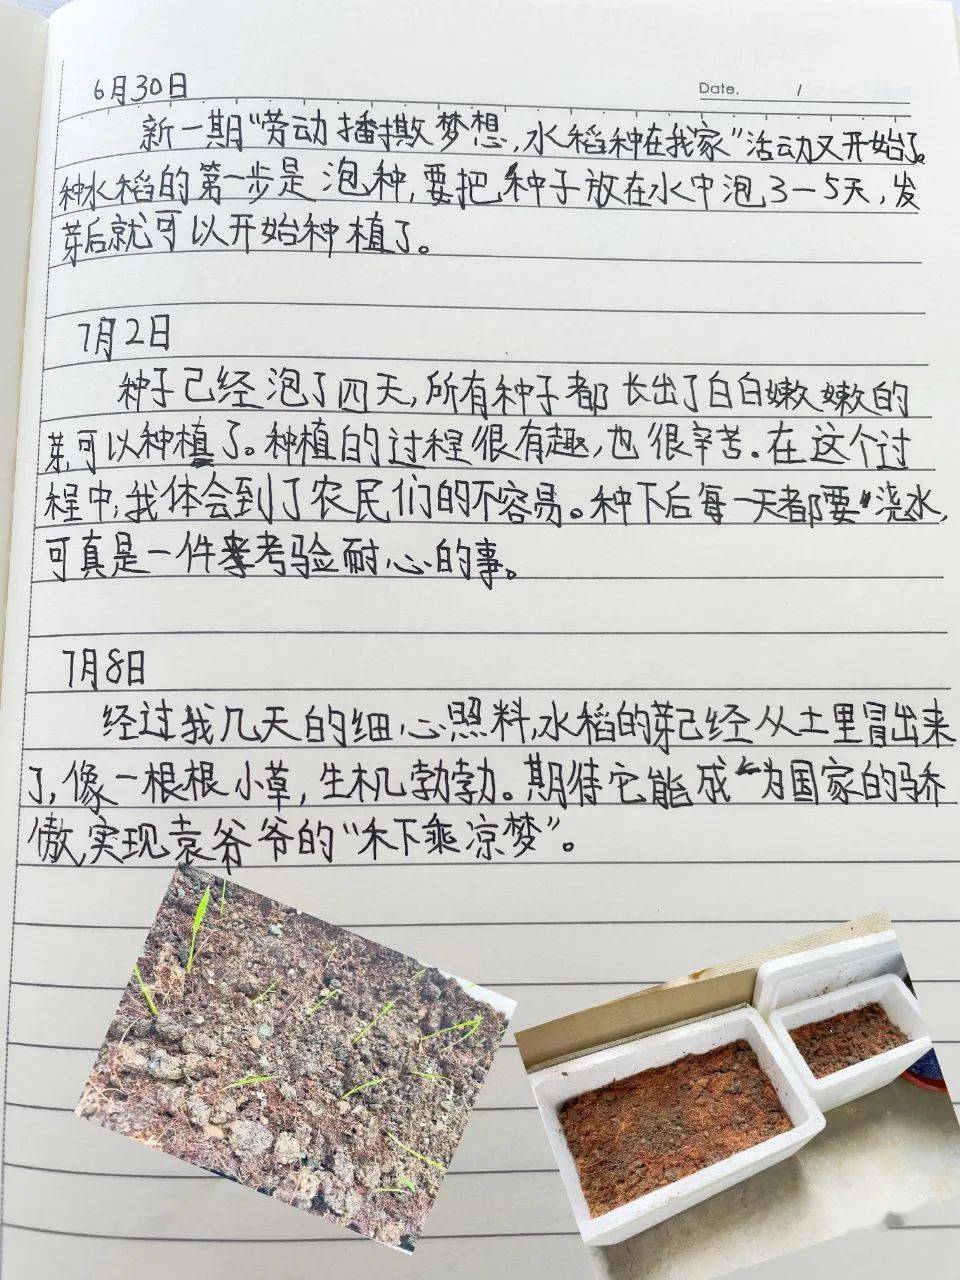 6月30日
Date. /
新一期“劳动播撒梦想,水稻种在我家”活动又开始了。
种水稻的第一步是泡种,要把种子放在水中泡3—5天,发
芽后就可以开始种植了。
7月2日
种子已经泡了四天,所有种子都长出了白白嫩嫩的
芽,可以种植了。种植的过程很有趣,也很辛苦。在这个过
程中,我体会到了农民们的不容易。种下后每一天都要浇水,
可真是一件考验耐心的事。
7月8日
经过我几天的细心照料,水稻的芽已经从土里冒出来
了,像一根根小草,生机勃勃。期待它能成为国家的骄
傲,实现袁爷爷的“禾下乘凉梦”。